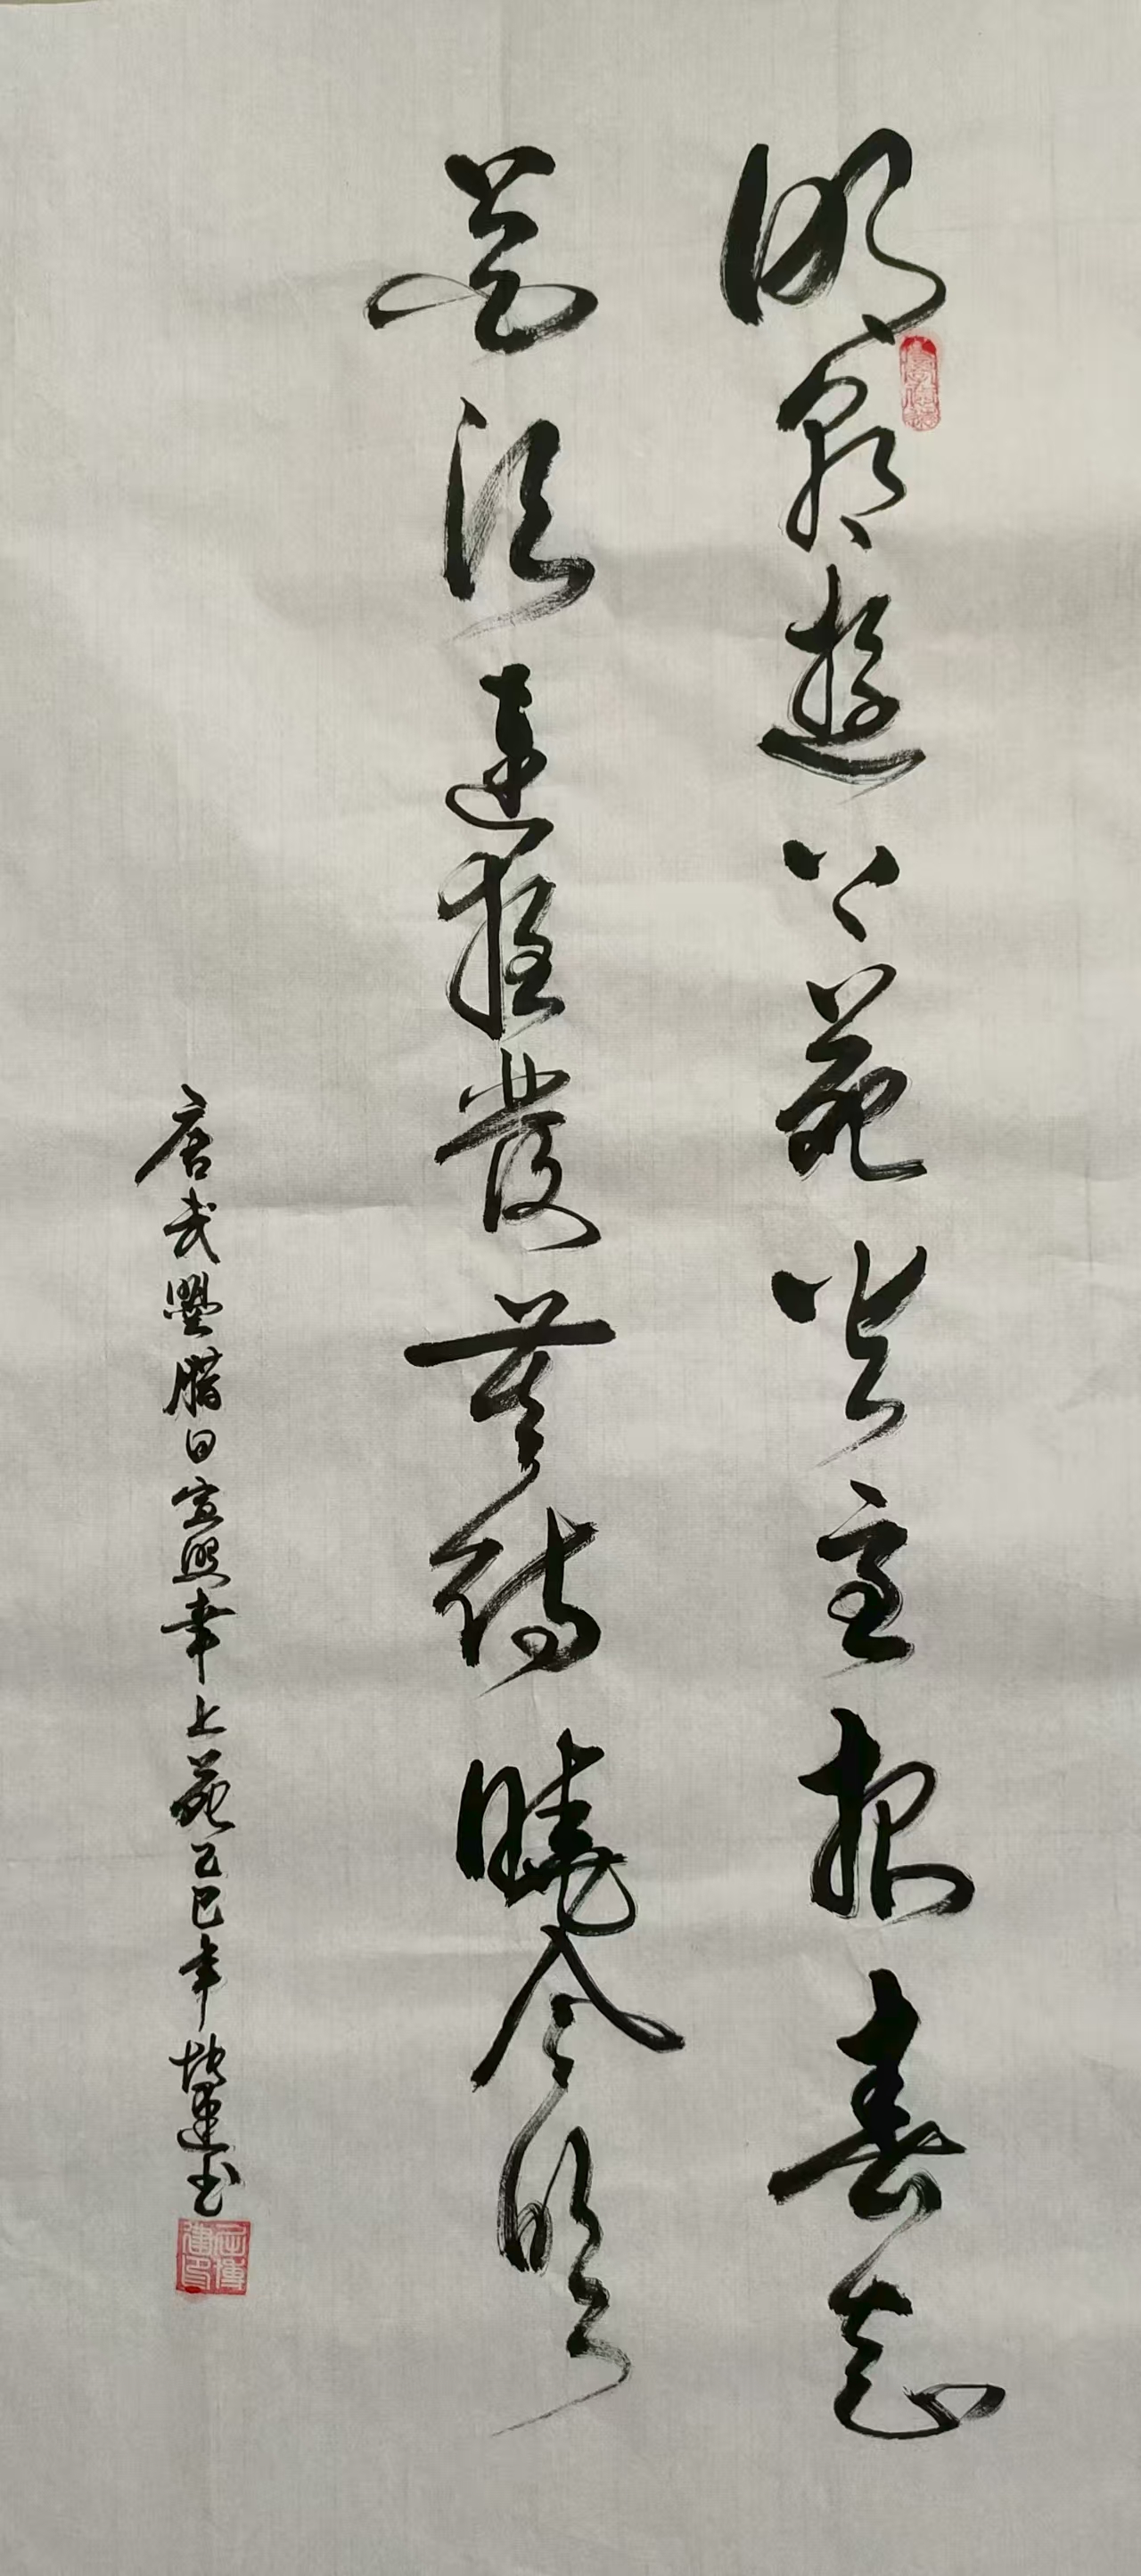 明朝遊上苑火急報春知
花須連夜發莫待曉風吹
唐武曌臘日宣照幸上苑乙巳年博建书